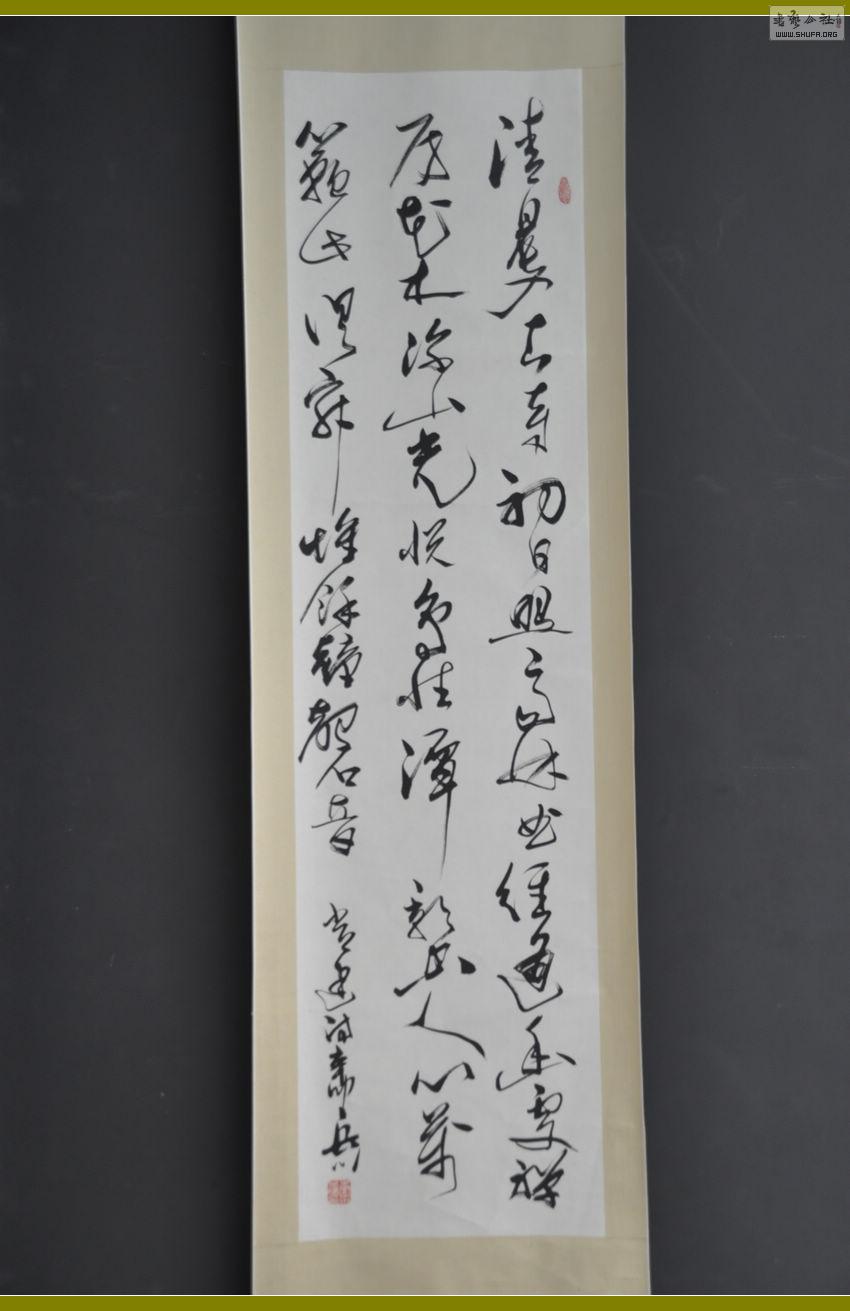 清晨入古寺初日照高林曲徑通幽處禪
房花木深山光悅鳥性潭影空人心萬
籟此俱寂惟餘鐘磬音 常建詩
書藝公社
WWW.SHUFA.ORG